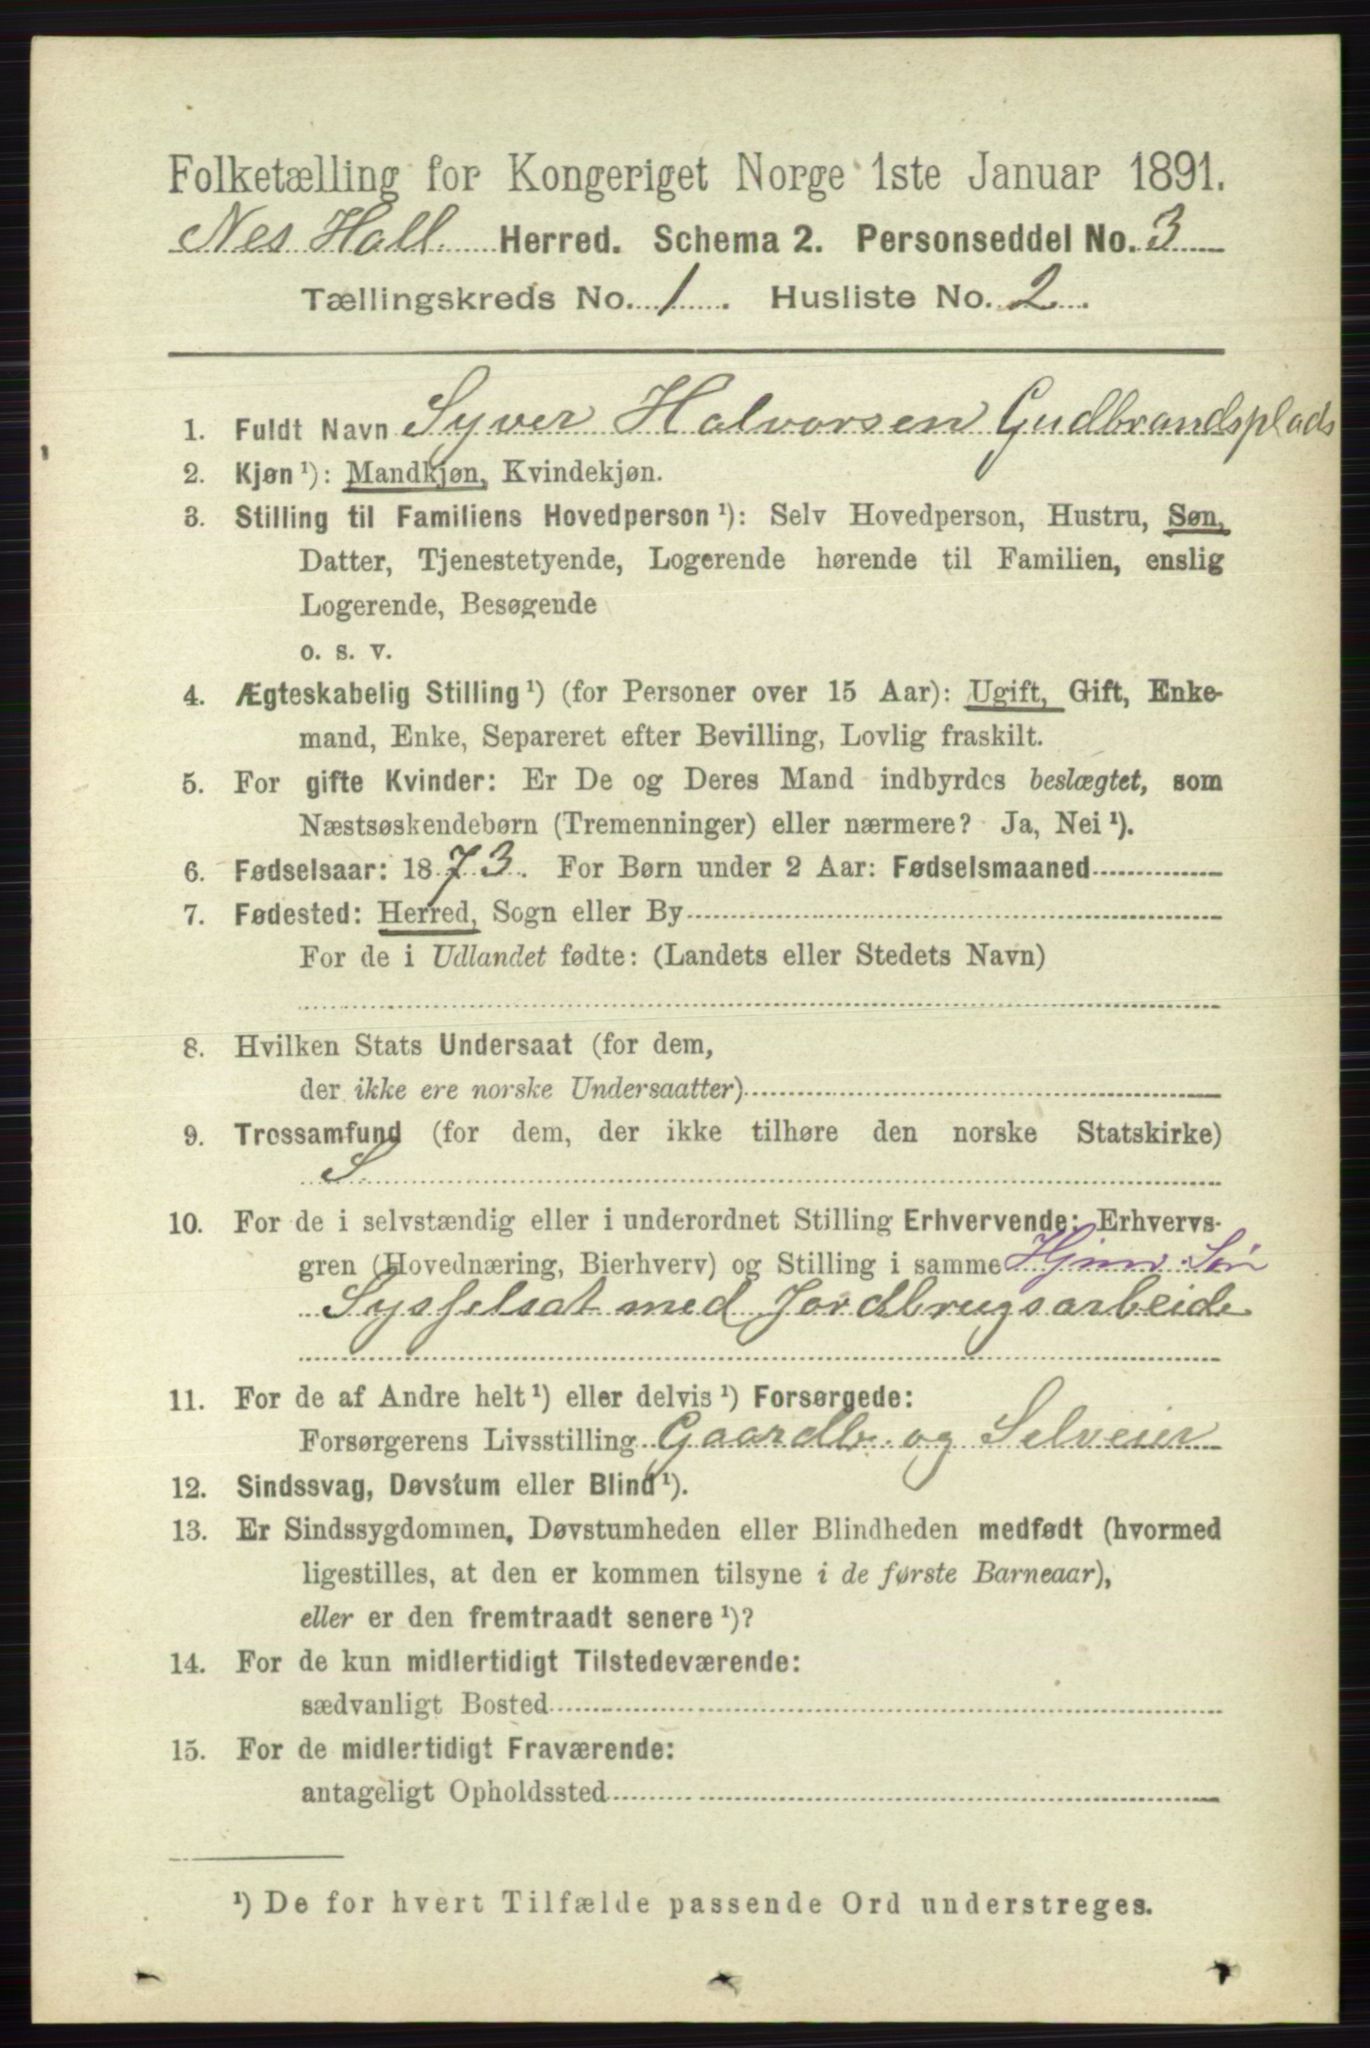 Folketælling for Kongeriget Norge 1ste Januar 1891.
Nes Hall. Herred. Schema 2. Personseddel No. 3
Tællingskreds No. 1. Husliste No. 2.
1. Fuldt Navn Syver Halvorsen Gudbrandsplads
2. Kjøn ¹): Mandkjøn, Kvindekjøn.
3. Stilling til Familiens Hovedperson ¹): Selv Hovedperson, Hustru, Søn,
Datter, Tjenestetyende, Logerende hørende til Familien, enslig
Logerende, Besøgende
o. s. v.
4. Ægteskabelig Stilling ¹) (for Personer over 15 Aar): Ugift, Gift, Enke-
mand, Enke, Separeret efter Bevilling, Lovlig fraskilt.
5. For gifte Kvinder: Er De og Deres Mand indbyrdes beslægtet, som
Næstsøskendebørn (Tremenninger) eller nærmere? Ja, Nei ¹).
6. Fødselsaar: 1873. For Børn under 2 Aar: Fødselsmaaned
7. Fødested: Herred, Sogn eller By
For de i Udlandet fødte: (Landets eller Stedets Navn)
8. Hvilken Stats Undersaat (for dem,
der ikke ere norske Undersaatter)
9. Trossamfund (for dem, der ikke tilhøre den norske Statskirke)
S
10. For de i selvstændig eller i underordnet Stilling Erhvervende: Erhvervs-
gren (Hovednæring, Bierhverv) og Stilling i samme Hjmv. Søn
Sysselsat med Jordbrugsarbeide
11. For de af Andre helt ¹) eller delvis ¹) Forsørgede:
Forsørgerens Livsstilling Gaardb. og Selveier
12. Sindssvag, Døvstum eller Blind ¹).
13. Er Sindssygdommen, Døvstumheden eller Blindheden medfødt (hvormed
ligestilles, at den er kommen tilsyne i de første Barneaar),
eller er den fremtraadt senere ¹)?
14. For de kun midlertidigt Tilstedeværende:
sædvanligt Bosted
15. For de midlertidigt Fraværende:
antageligt Opholdssted
¹) De for hvert Tilfælde passende Ord understreges.